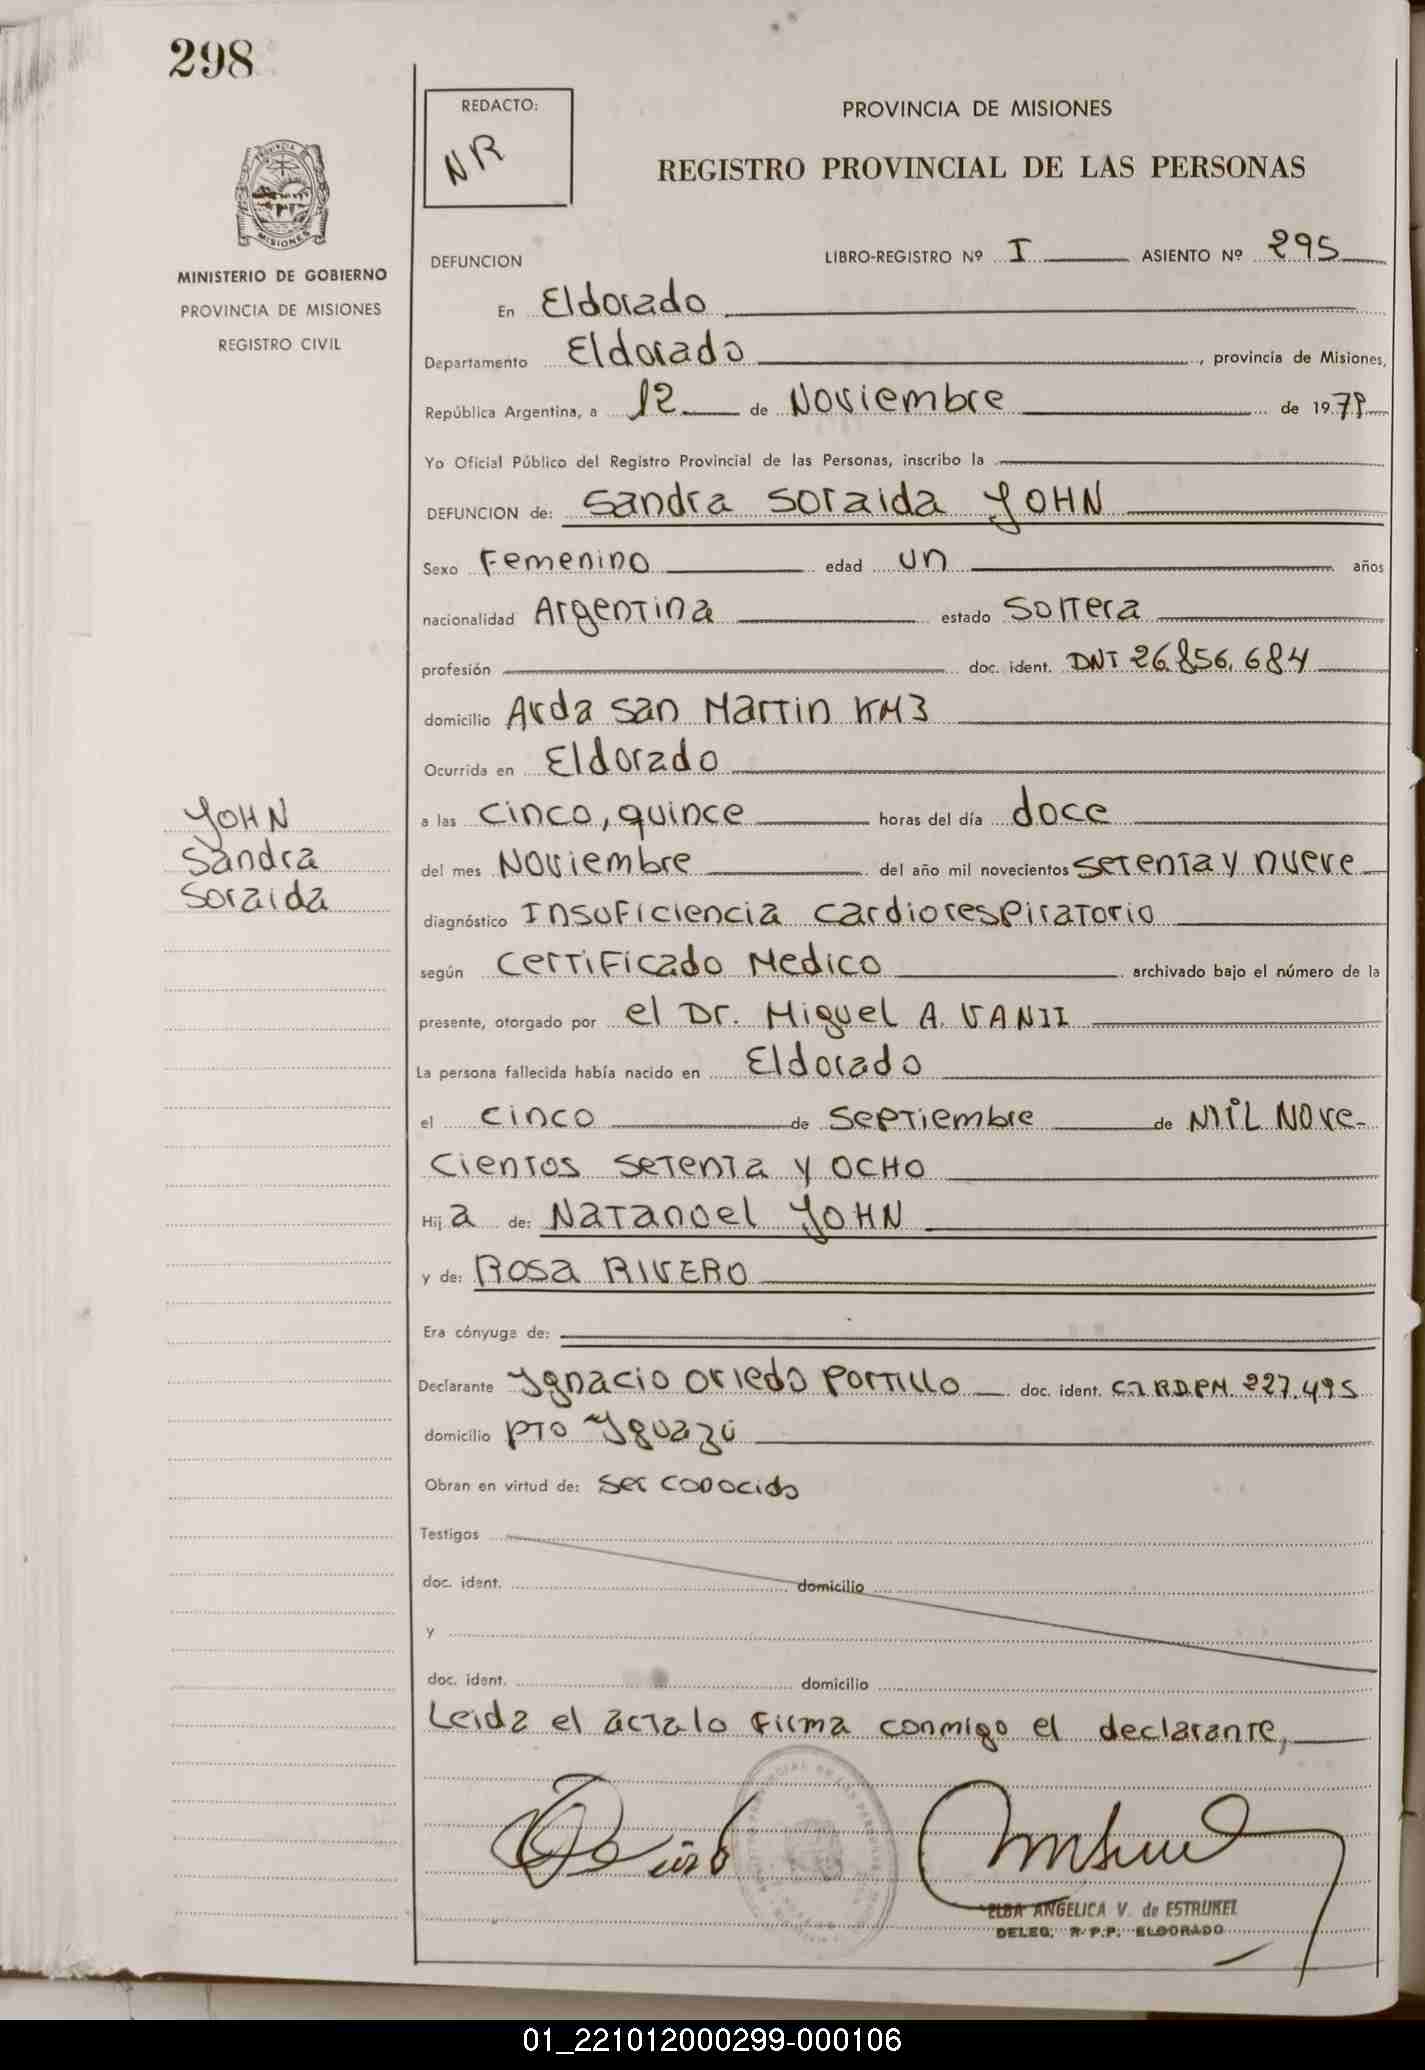 298
REDACTO:
NR
PROVINCIA DE MISIONES
REGISTRO PROVINCIAL DE LAS PERSONAS
MINISTERIO DE GOBIERNO
PROVINCIA DE MISIONES
REGISTRO CIVIL
DEFUNCION LIBRO-REGISTRO Nº I ASIENTO Nº 295
En Eldorado
Departamento Eldorado, provincia de Misiones,
República Argentina, a 12 de Noviembre de 1979
Yo Oficial Público del Registro Provincial de las Personas, inscribo la
DEFUNCION de: Sandra Soraida YOHN
Sexo Femenino edad un años
nacionalidad Argentina estado Soltera
profesión doc. ident. DNI 26.856.684
domicilio Avda San Martin KM3
Ocurrida en Eldorado
YOHN
Sandra
Soraida
a las cinco, quince horas del día doce
del mes Noviembre del año mil novecientos setenta y nueve
diagnóstico Insuficiencia cardiorespiratorio
según Certificado Medico archivado bajo el número de la
presente, otorgado por el Dr. Miguel A. VANII
La persona fallecida había nacido en Eldorado
el cinco de Septiembre de MIL Nove-
cientos setenta y ocho
Hija de: Natanoel YOHN
y de: Rosa RIVERO
Era cónyuge de:
Declarante Ygnacio Oviedo Portillo doc. ident. C.I.R.D.P.M. 227.495
domicilio Pto Yguazú
Obran en virtud de: Ser conocido
Testigos
doc. ident. domicilio
y
doc. ident. domicilio
Leida el acta lo firma conmigo el declarante,
ELBA ANGELICA V. de ESTRUKEL
DELEG. R.P.P. ELDORADO
01_221012000299-000106